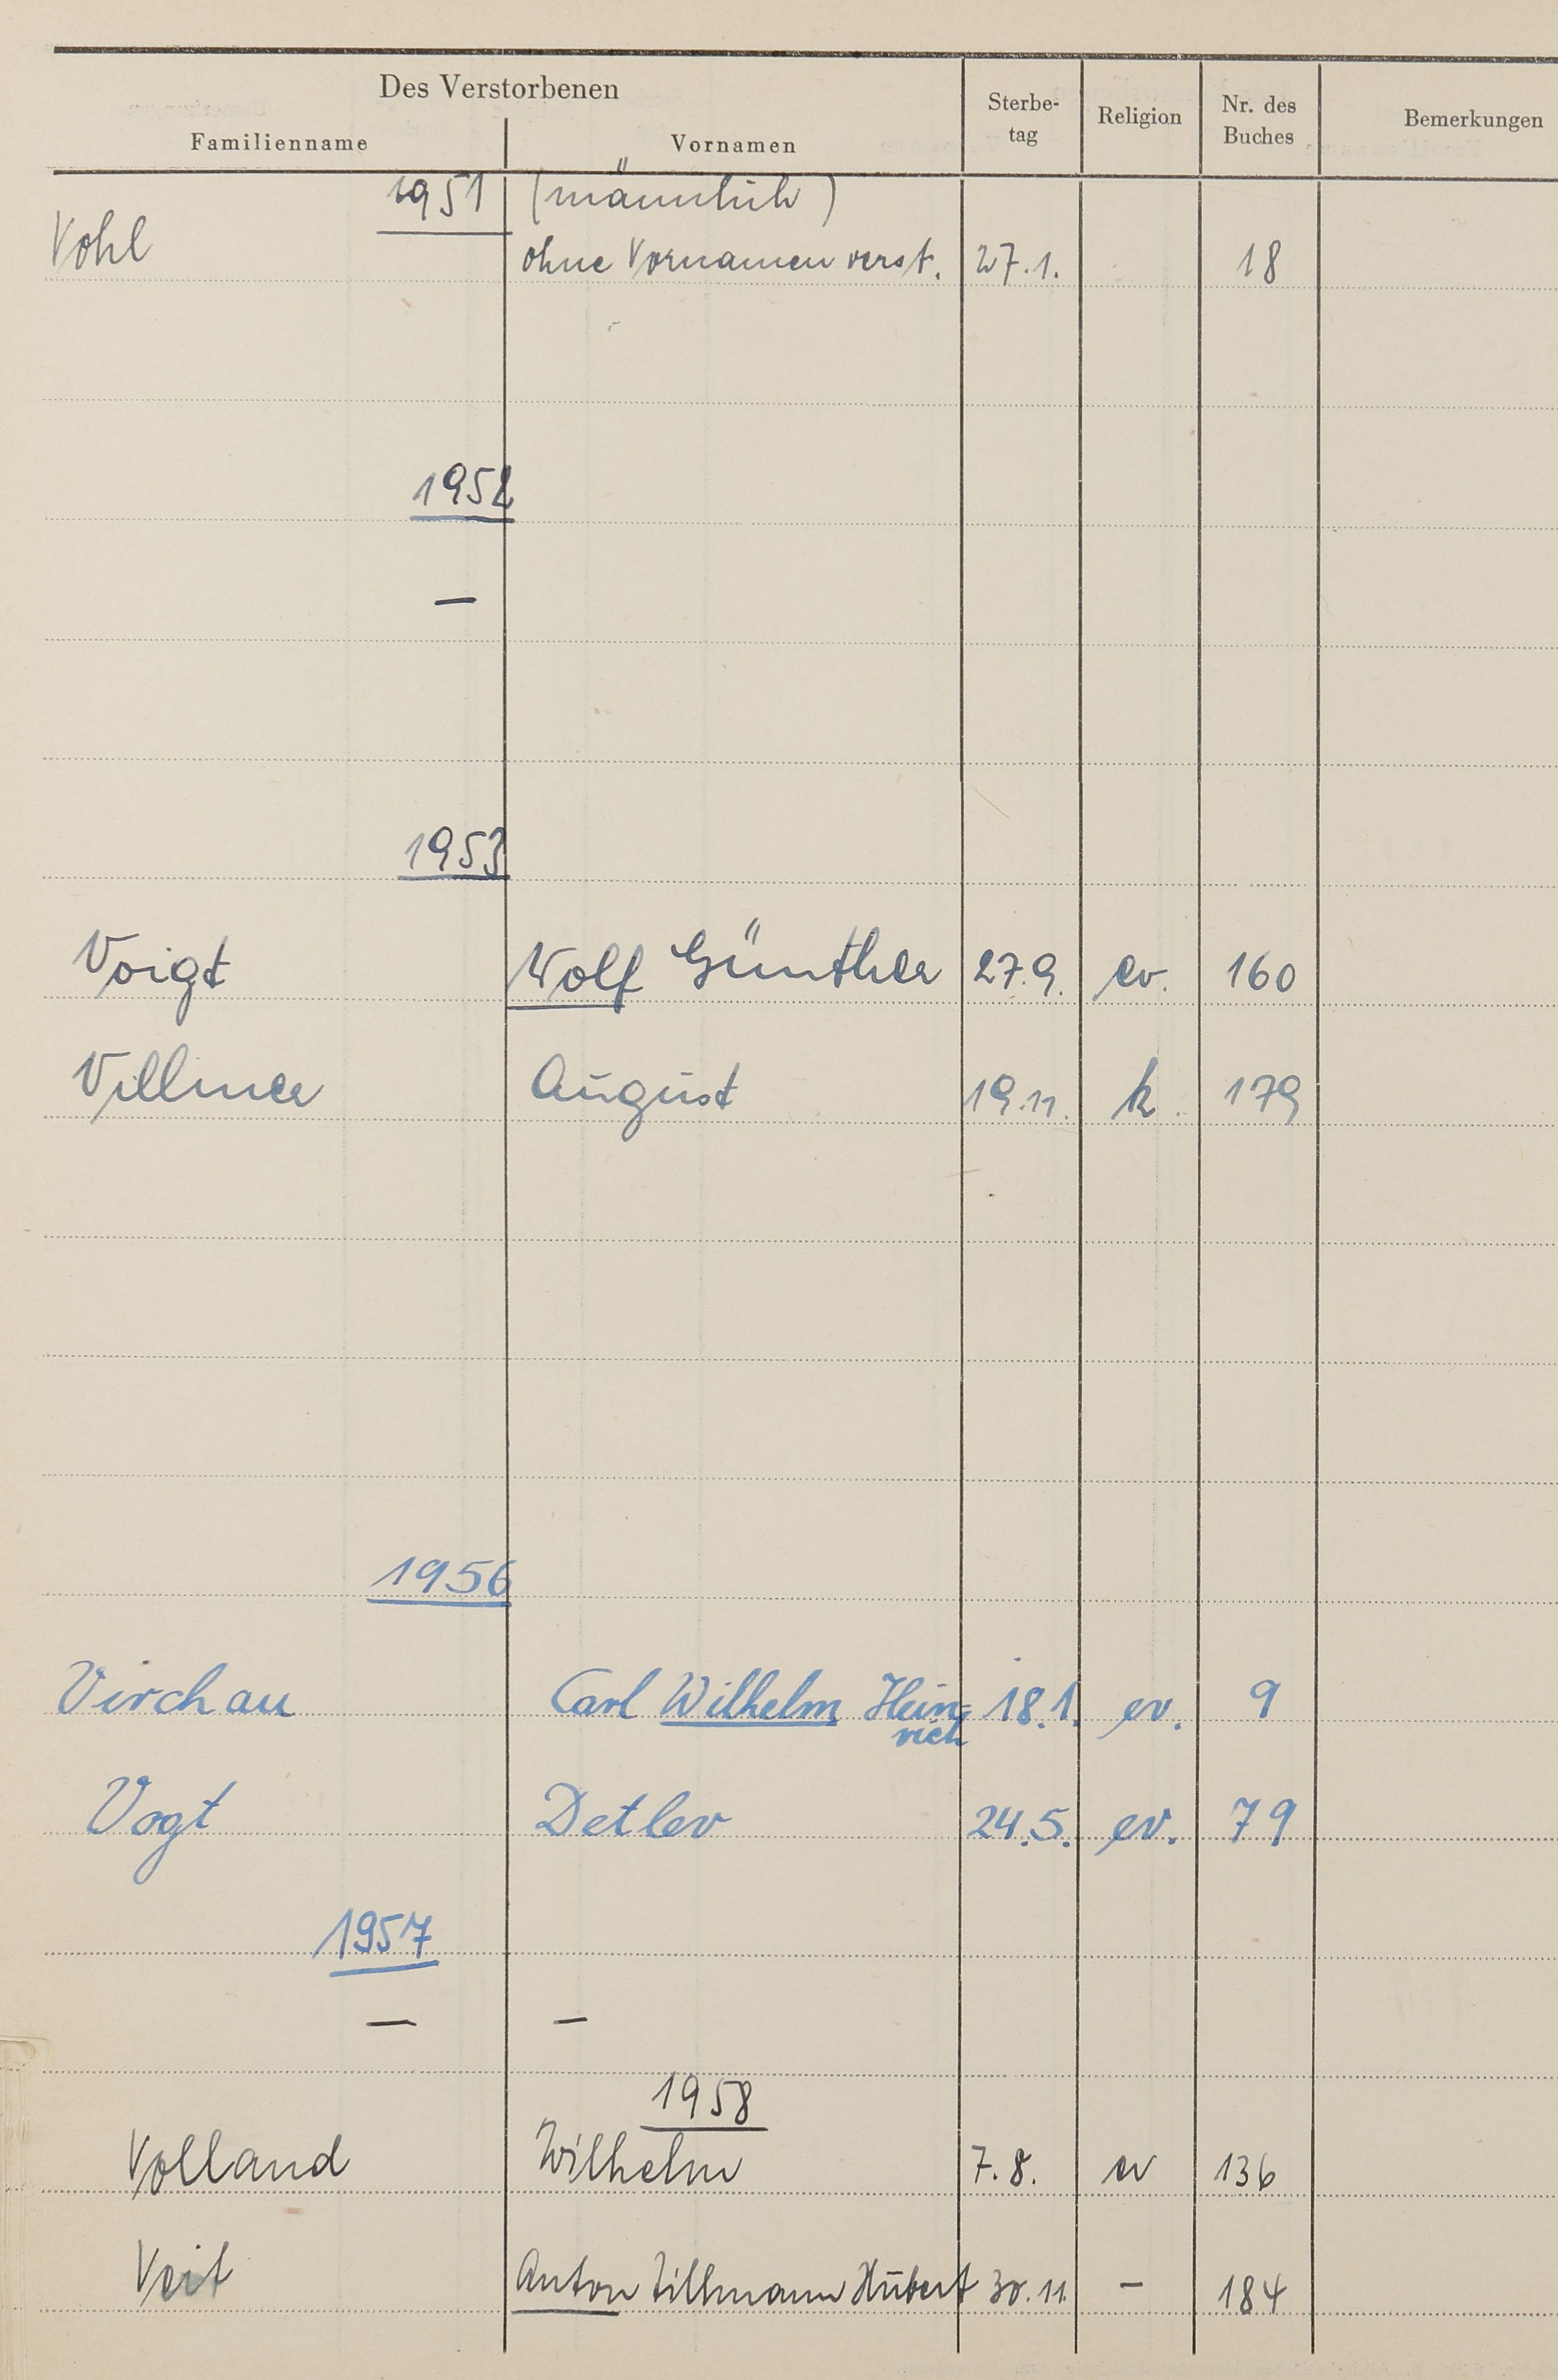 Des Verstorbenen
Familienname Vornamen Sterbe-tag Religion Nr. des Buches Bemerkungen
1951 (männlich)
Vohl ohne Vornamen verst. 27.1. 18
1952
—
1953
Voigt Wolf Günther 27.9. ev. 160
Villmer August 19.11. k. 179
1956
Virchau Carl Wilhelm Hein-rich 18.1. ev. 9
Vogt Detlev 24.5. ev. 79
1957
— —
1958
Volland Wilhelm 7.8. ev 136
Veit Anton Tillmann Hubert 30.11. — 184